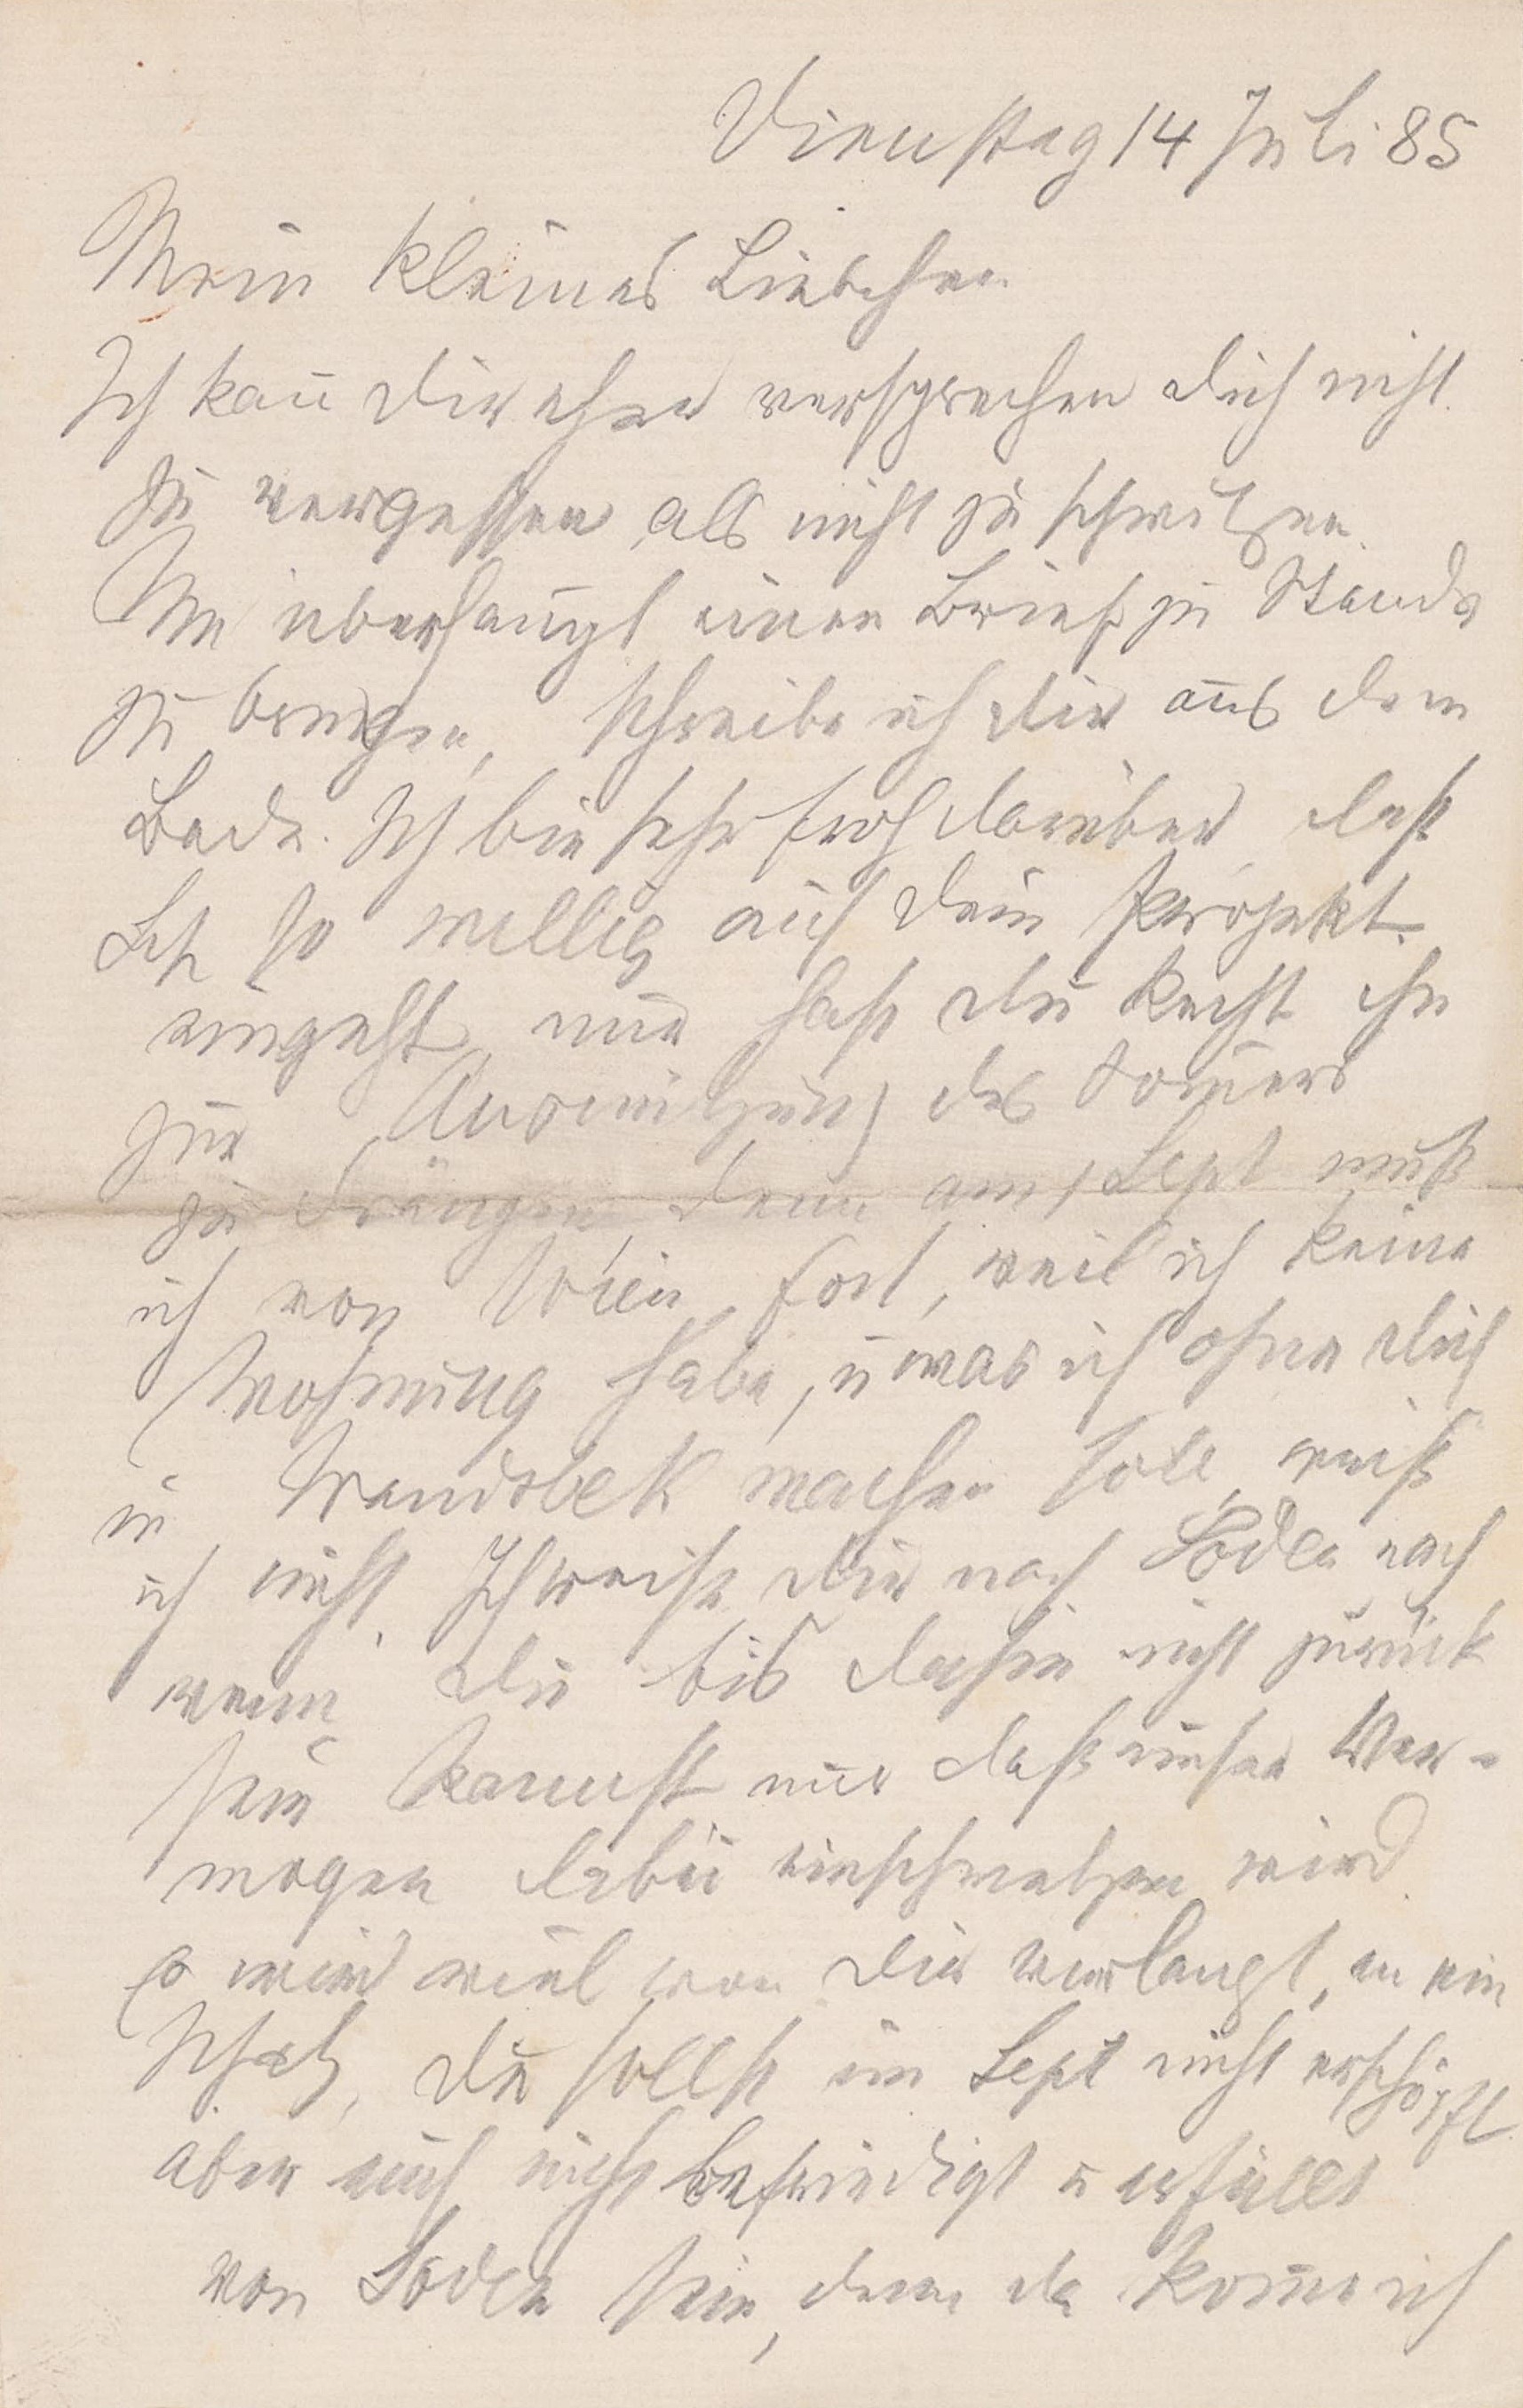 Dienstag 14 Juli 85
Mein kleines Liebchen
Ich kañ Dir eher versprechen Dich nicht
zu vergessen, als nicht zu schwitzen.
Um überhaupt einen Brief zu Stande
zu bringen, schreibe ich Dir aus dem
Bade. Ich bin sehr froh darüber, daß
so willig auf Dein Projekt
eingeht, nur hast Du Recht ihn
zur Ausnützung des Som̃ers
zu drängen, denn am 1 Sept muß
ich von Wien fort, weil ich keine
Wohnung habe, u was ich ohne Dich
in Wandsbek machen soll, weiß
ich nicht. Ich reise Dir nach Soden nach
wenn Du bis dahin nicht zurück
sein kannst nur daß unser Ver-
mögen dabei einschmelzen wird.
Es wird viel von Dir verlangt, mein
Schatz, Du sollst im Sept nicht erschöpft
aber auch nicht befriedigt u erfüllt
von Soden sein, denn da kom̃e ich